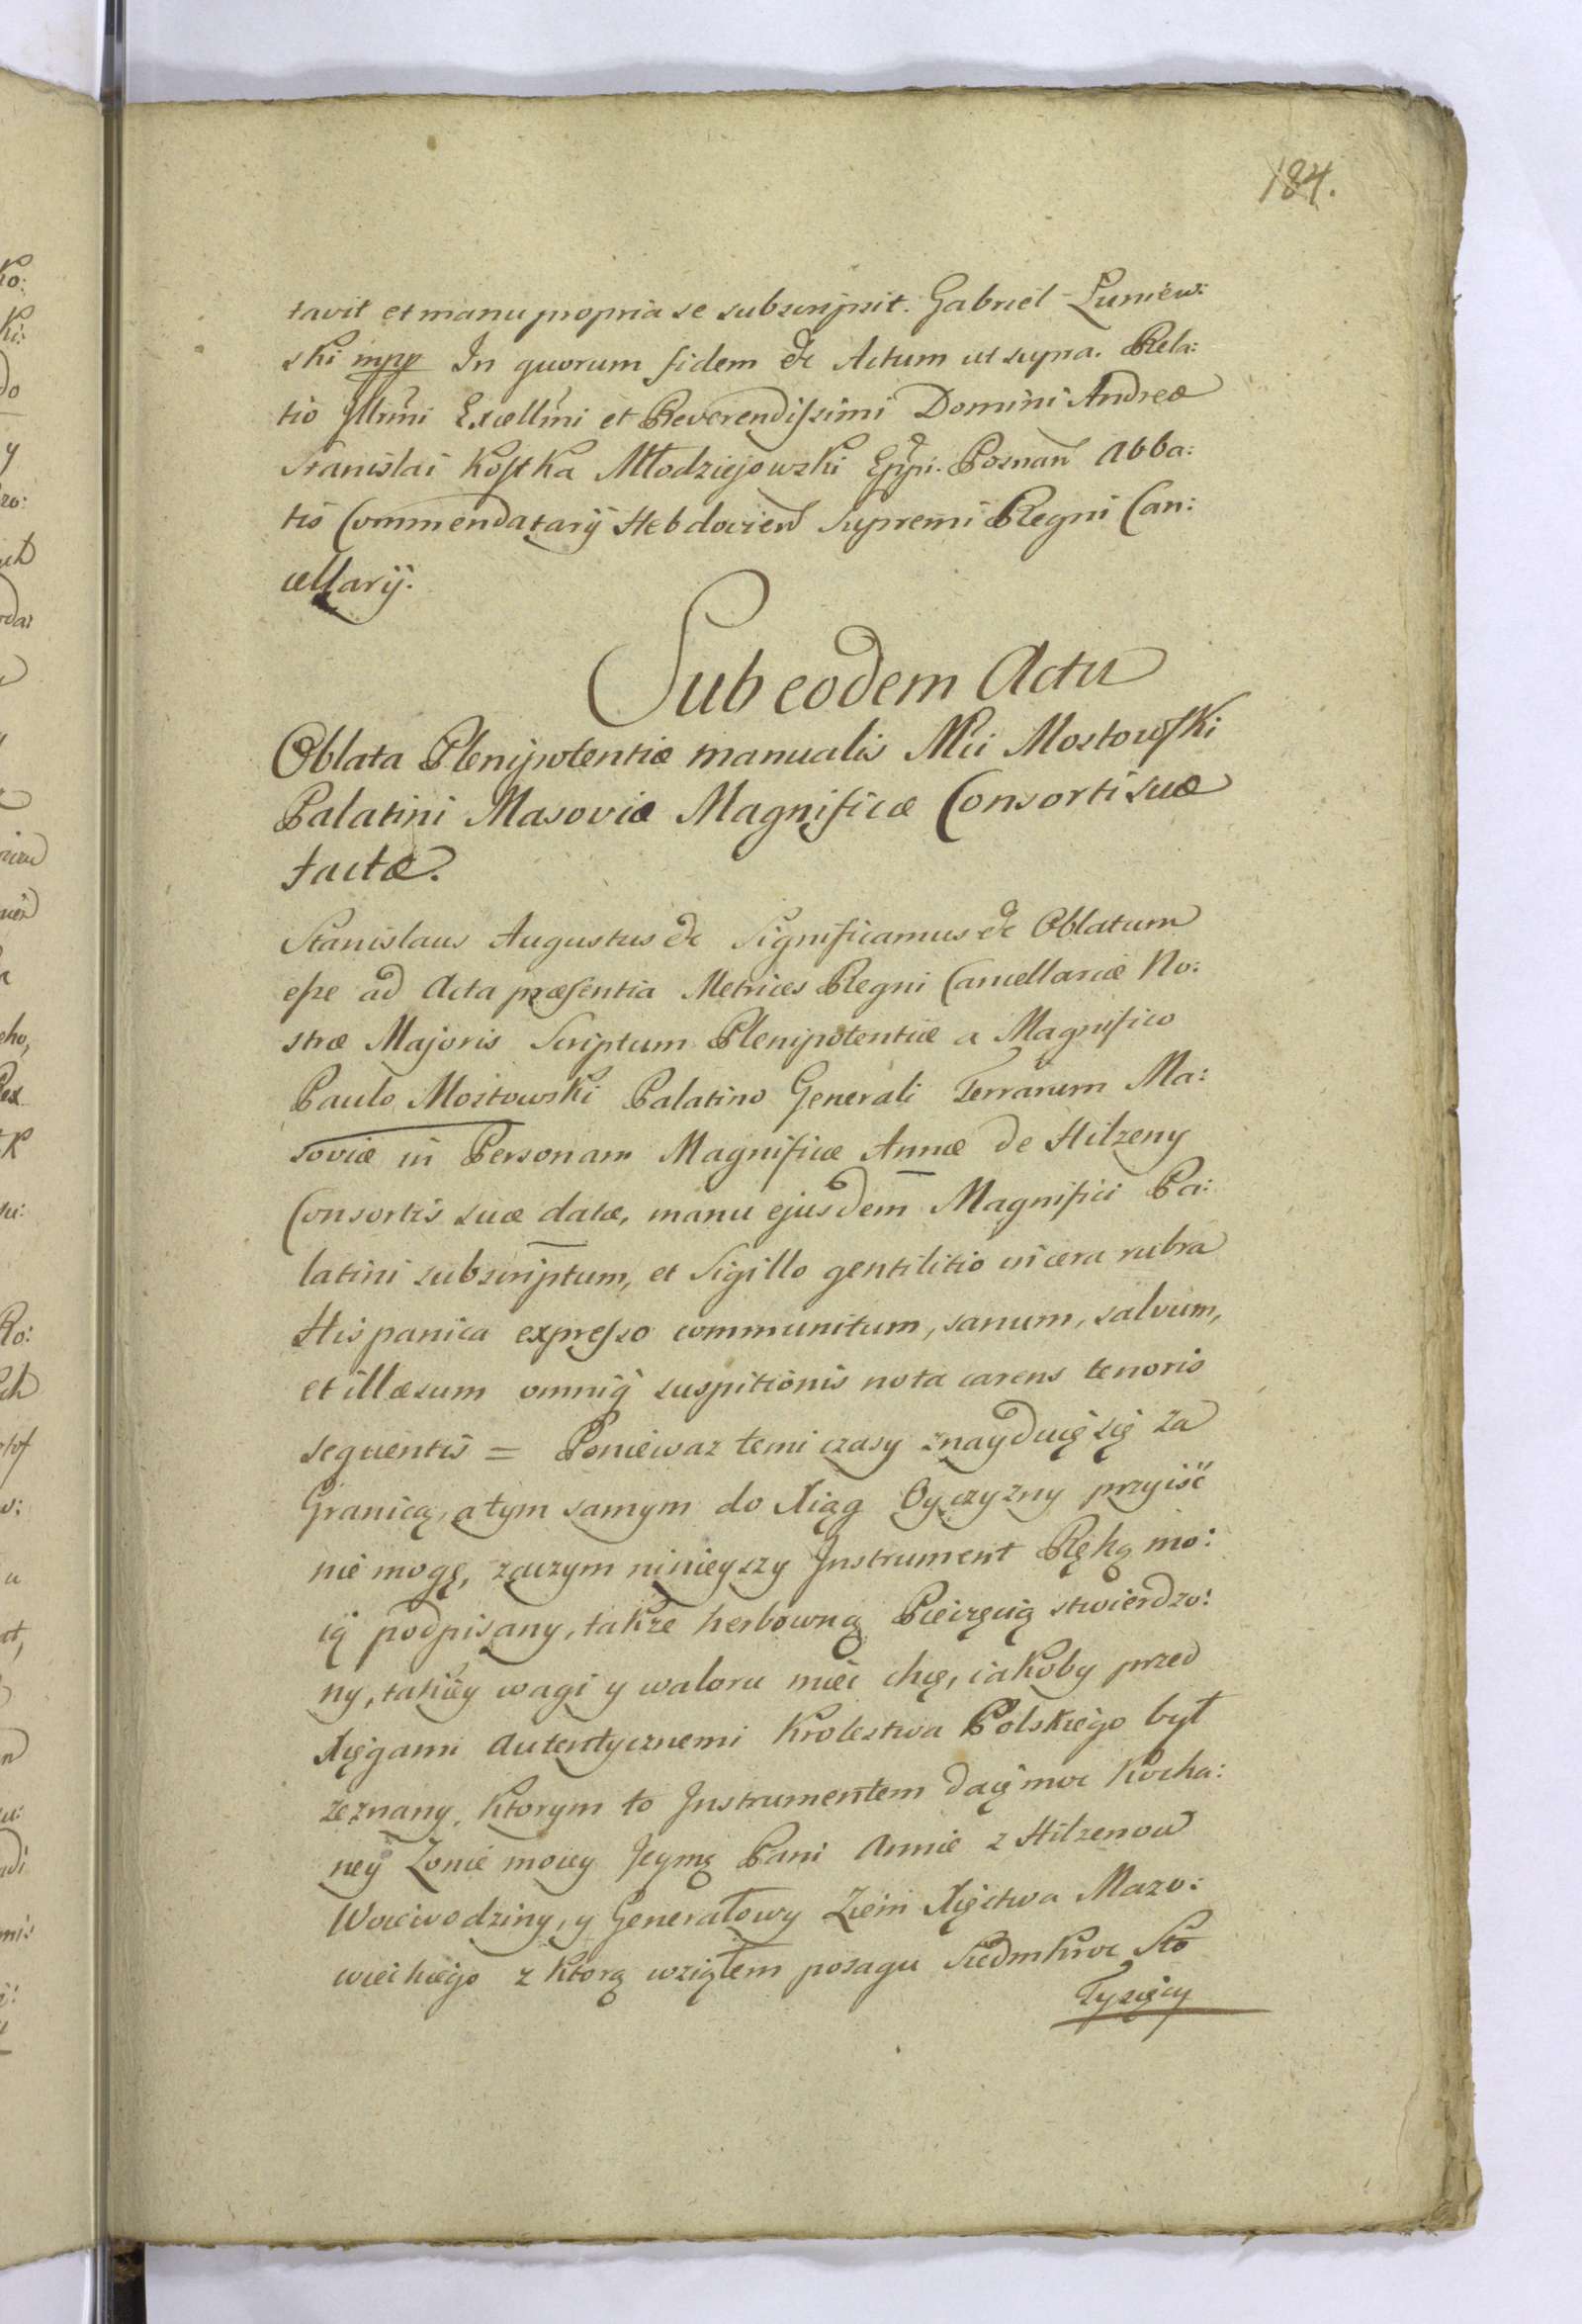 184.
tavit et manu propria se subscripsit. Gabriel Łuniew:
ski mpp In quorum fidem &c Actum ut supra. Rela:
tio Illrmi Excellmi et Reverendissimi Domini Andreæ
Stanislai Kostka Młodziejowski Eppi. Posnan Abba:
tis Commendatarij Hebdovien Supremi Regni Can:
cellarij.
Sub eodem Actu
Oblata Plenipotentiæ manualis Mci Mostowski
Palatini Masoviæ Magnificæ Consorti suæ
factæ.
Stanislaus Augustus &c Significamus &c Oblatum
esse ad Acta præsentia Metrices Regni Cancellariæ No:
stræ Majoris Scriptum Plenipotentiæ a Magnifico
Paulo Mostowski Palatino Generali Terrarum Ma:
soviæ in Personam Magnificæ Annæ de Hilzeny
Consortis suæ datæ, manu ejusdem Magnifici Pa:
latini subscriptum, et Sigillo gentilitio in cera rubra
Hispanica expresso communitum, sanum, salvum,
et illæsum omniq suspitionis nota carens tenoris
sequentis = Ponieważ temi czasy znayduię się za
Granicą, a tym samym do Xiąg Oyczyzny przyiść
nie mogę, zaczym ninieyszy Instrument Ręką mo:
ią podpisany, także herbowną Pieczęcią stwierdzo:
ny, takiey wagi y waloru mieć chcę, iakoby przed
Xięgami Autentycznemi Krolestwa Polskiego był
zeznany, ktorym to Instrumentem daię moc Kocha:
ney Zonie moiey Jeymę Pani Annie z Hilzenow
Woiewodziny, y Generałowy Ziem Xięstwa Mazo:
wieckiego z ktorą wziąłem posagu Siedmkroc Sto
Tysięcy